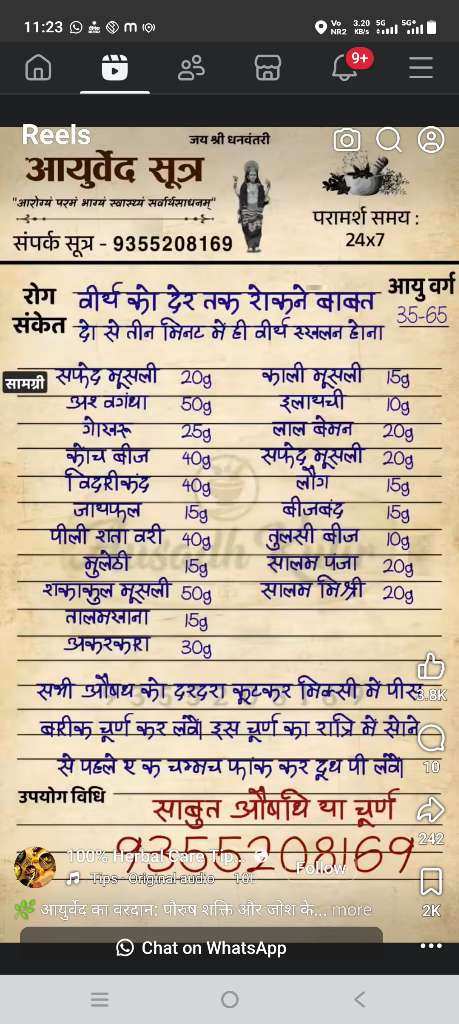 11:23
Vo NR2 3.20 KB/s 5G 5G+
9+
Reels
जय श्री धनवंतरी
आयुर्वेद सूत्र
"आरोग्यं परमं भाग्यं स्वास्थ्यं सर्वार्थसाधनम्"
संपर्क सूत्र - 9355208169
परामर्श समय :
24x7
रोग संकेत
वीर्य को देर तक रोकने बाबत
दो से तीन मिनट में ही वीर्य स्खलन होना
आयु वर्ग
35-65
सामग्री
सफेद मूसली 20g काली मूसली 15g
अश्वगंधा 50g इलायची 10g
गोखरू 25g लाल बेमन 20g
कोच बीज 40g सफेद मूसली 20g
विदरीकंद 40g लौंग 15g
जायफल 15g बीजबंद 15g
पीली शतावरी 40g तुलसी बीज 10g
मुलेठी 15g सालम पंजा 20g
शकाकुल मूसली 50g सालम मिश्री 20g
तालमखाना 15g
अकरकरा 30g
सभी औषध को दरदरा कूटकर मिक्सी में पीस
बरीक चूर्ण कर लेवें। इस चूर्ण का रात्रि में सोने
से पहले एक चम्मच फांक कर दूध पी लेवें।
उपयोग विधि
साबुत औषधि या चूर्ण
9355208169
3.8K
10
242
2K
100% Herbal Care Tip...
Follow
Tips · Original audio
🌿 आयुर्वेद का वरदान: पौरुष शक्ति और जोश के... more
Chat on WhatsApp